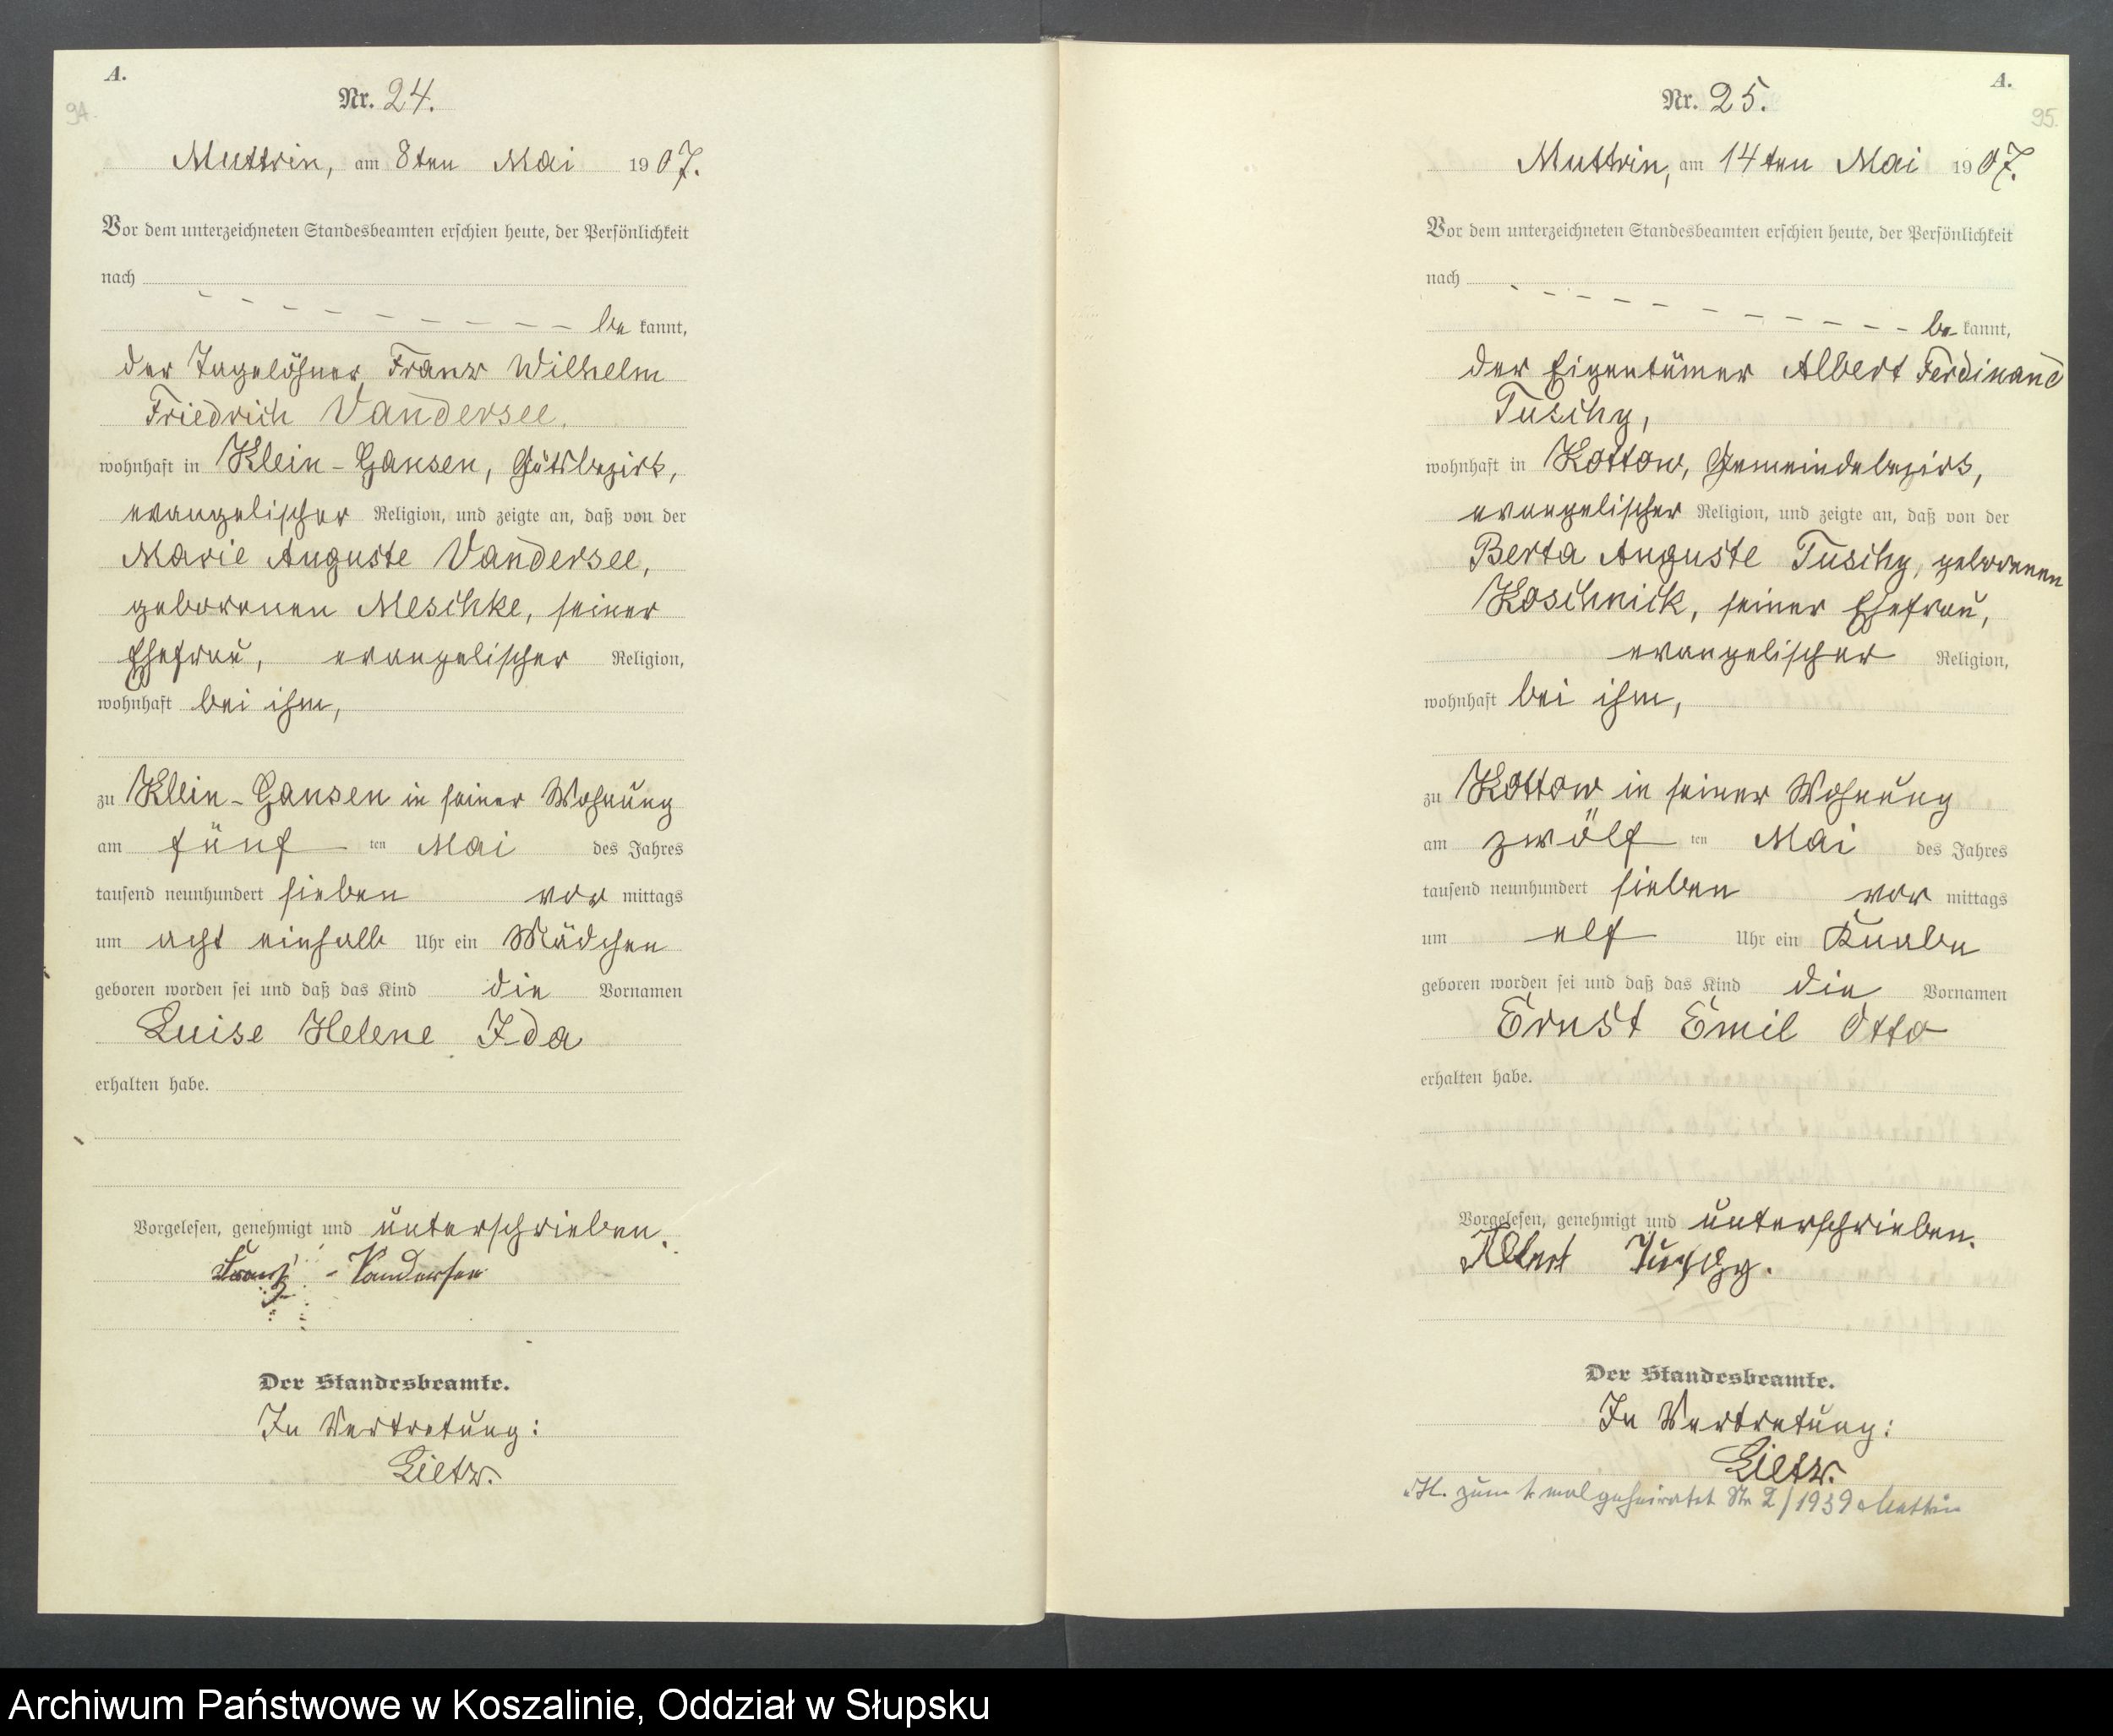 A.
94.
Nr. 24.
Muttrin, am 8ten Mai 1907.
Vor dem unterzeichneten Standesbeamten erschien heute, der Persönlichkeit
nach
be kannt,
der Tagelöhner Franz Wilhelm
Friedrich Vandersee.
wohnhaft in Klein-Gansen, Gutsbezirk,
evangelischer Religion, und zeigte an, daß von der
Marie Auguste Vandersee,
geborenen Meschke, seiner
Ehefrau, evangelischer Religion,
wohnhaft bei ihm,
zu Klein-Gansen in seiner Wohnung
am fünf ten Mai des Jahres
tausend neunhundert sieben vor mittags
um acht einhalb Uhr ein Mädchen
geboren worden sei und daß das Kind die Vornamen
Luise Helene Ida
erhalten habe.
Vorgelesen, genehmigt und unterschrieben.
Franz Vandersee
Der Standesbeamte.
In Vertretung:
Lietz.
A.
95.
Nr. 25.
Muttrin, am 14ten Mai 1907.
Vor dem unterzeichneten Standesbeamten erschien heute, der Persönlichkeit
nach
be kannt,
der Eigentümer Albert Ferdinand
Tuschy,
wohnhaft in Kottow, Gemeindebezirk,
evangelischer Religion, und zeigte an, daß von der
Berta Auguste Tuschy, geborenen
Koschnick, seiner Ehefrau,
evangelischer Religion,
wohnhaft bei ihm,
zu Kottow in seiner Wohnung
am zwölf ten Mai des Jahres
tausend neunhundert sieben vor mittags
um elf Uhr ein Knabe
geboren worden sei und daß das Kind die Vornamen
Ernst Emil Otto
erhalten habe.
Vorgelesen, genehmigt und unterschrieben.
Albert Tuschy.
Der Standesbeamte.
In Vertretung:
Lietz.
zum 1. mal geheiratet Nr. 2/1939 Muttrin
Archiwum Państwowe w Koszalinie, Oddział w Słupsku